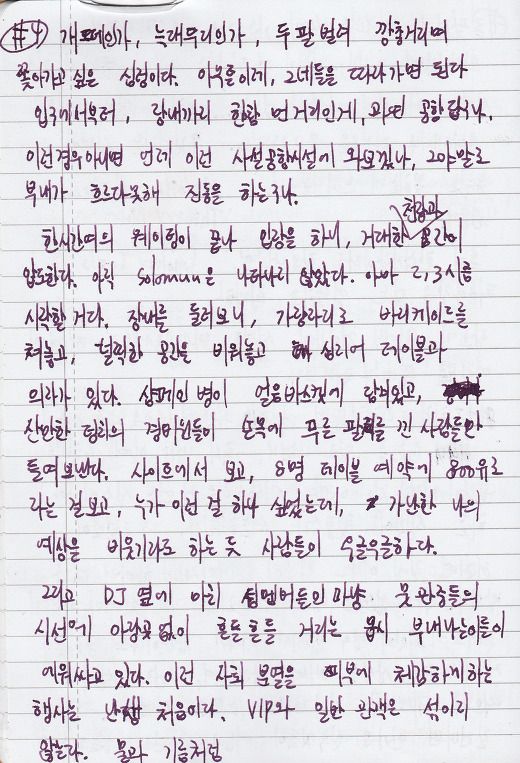 #4 개떼인가, 늑대무리인가, 두 팔 벌려 깡총거리며
쫓아가고 싶은 심정이다. 아웃흘이게, 그네들을 따라가면 된다
입구에서부터, 랑내까지 한참 먼거리인게, 과연 공항답구나.
이런경우아니면 언제 이런 사설공항시설에 와보겠나, 그야말로
부내가 흐르다못해 진동을 하는구나.
한시간여의 웨이팅이 끝나 입장을 하니, 거대한 천장과 공간이
압도한다. 아직 Solomun은 나타나지 않았다. 아마 2,3시쯤
시작할거다. 장내를 둘러보니, 가장자리로 바리케이드를
쳐놓고, 널찍한 공간을 비워놓고 심지어 테이블과
의자가 있다. 샴페인 병이 얼음바스켓에 담겨있고,
산만한 덩치의 경비원들이 손목에 푸른 팔찌를 낀 사람들만
들여보낸다. 사이트에서 보고, 8명 테이블 예약에 800유로
라는 걸보고, 누가 이런걸 하나 싶었는데, 가난한 나의
예상을 비웃기라도 하는 듯 사람들이 우글우글하다.
그리고 DJ 옆에 마치 팀멤버들인 마냥 뭇 관중들의
시선에 아랑곳 없이 흔들흔들 거리는 몹시 부내나는이들이
에워싸고 있다. 이런 자회 분열을 피부에 체감하게하는
행사는 난생 처음이다. VIP와 일반 관객은 섞이지
않는다. 물과 기름처럼